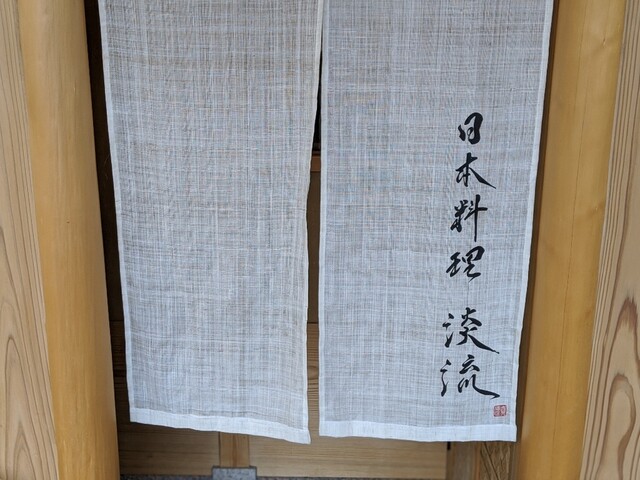 日本料理 淡流